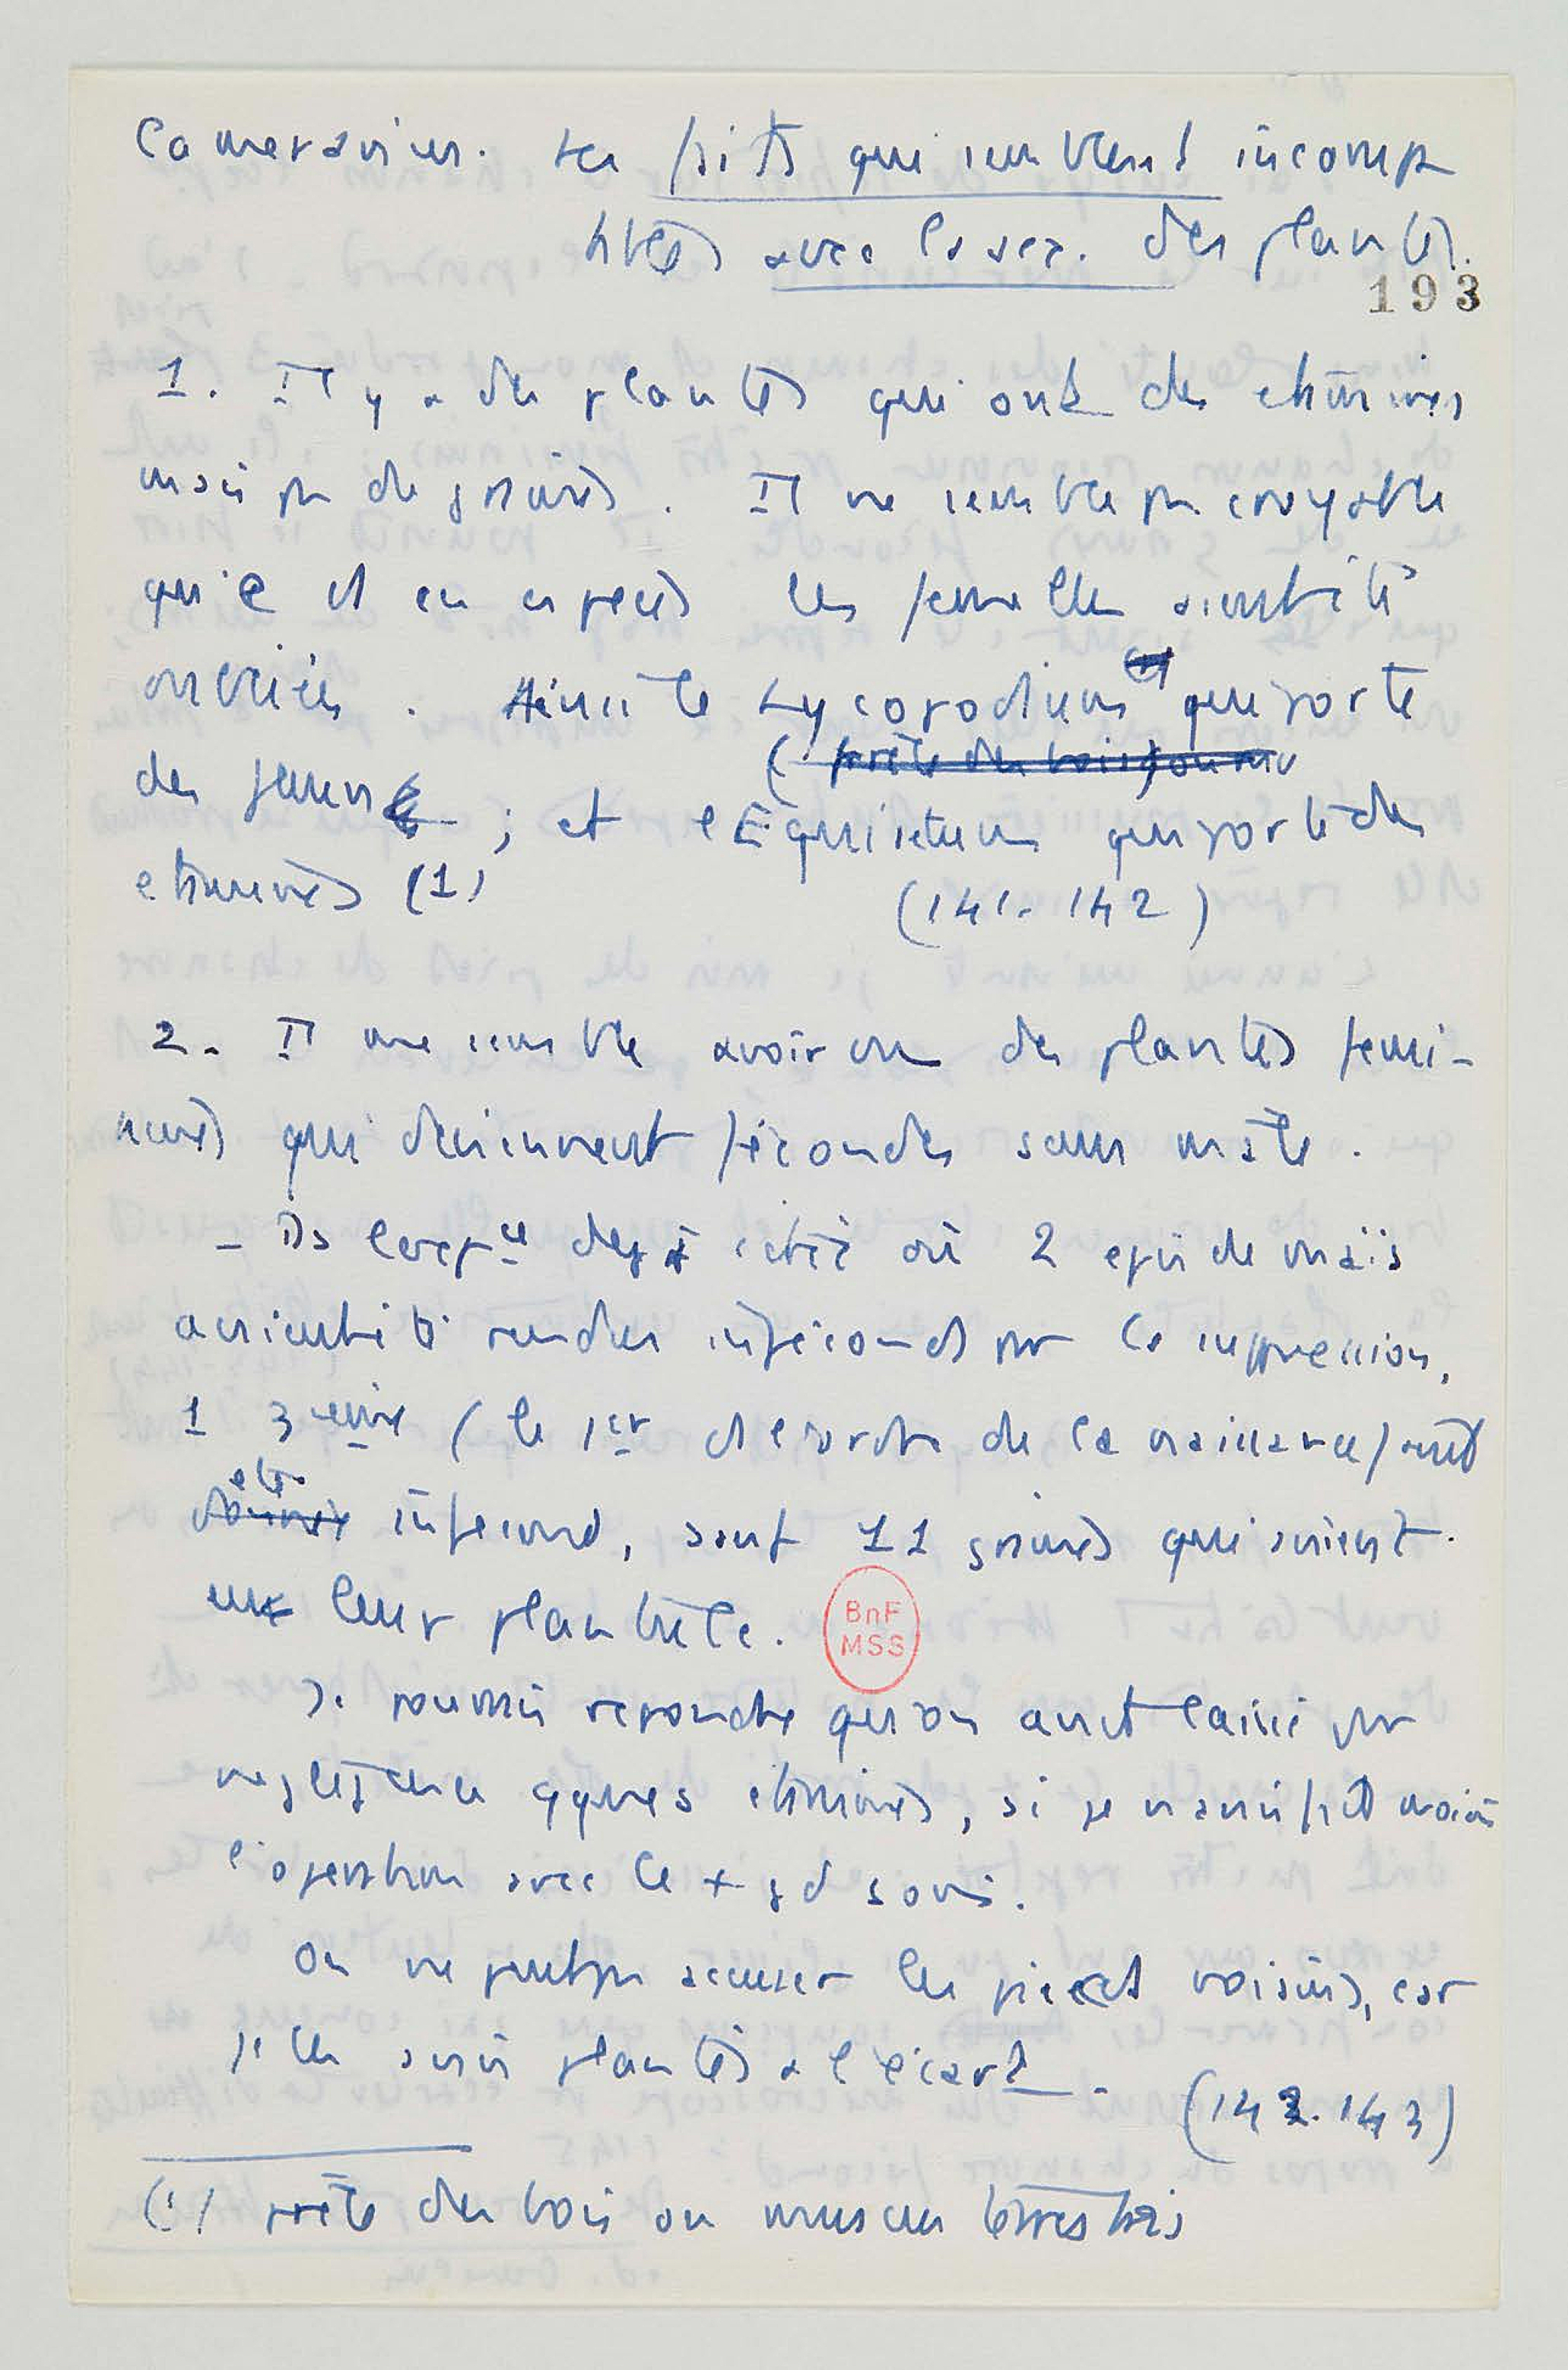 Camerarius. Les faits qui semblent incomp
tibles avec la sex. des plantes.
193
1. Il y a des plantes qui ont des etamines
mais pas de graines. Il ne semble pas croyable
qu'e et en especes les femelles aient été
oubliées. Ainsi le Lycopodium qui porte
des
; et l'Equisetum qui porte des
etamines (1)
(141-142)
2. Il me semble avoir vu des plantes femi-
nines qui deviennent fécondes sans mâle.
- Ds l'exp ce deja citée où 2 epis de maïs
avaient été rendus inféconds par la suppression,
1 3 eme (le 1er et à partir de la naissance) avait
ete infecond, sauf 11 graines qui avaient
eux leur plantule.
Je pourrais repondre qu'on avait laissé par
negligence qques etamines, si je n'avais fait moi
l'operation avec le + gd soin.
On ne peut pas accuser les pieds voisins, car
je les avais plantés a l'écart.
(142-143)
(1) prêle des bois ou muscus terrestris
BnF
MSS